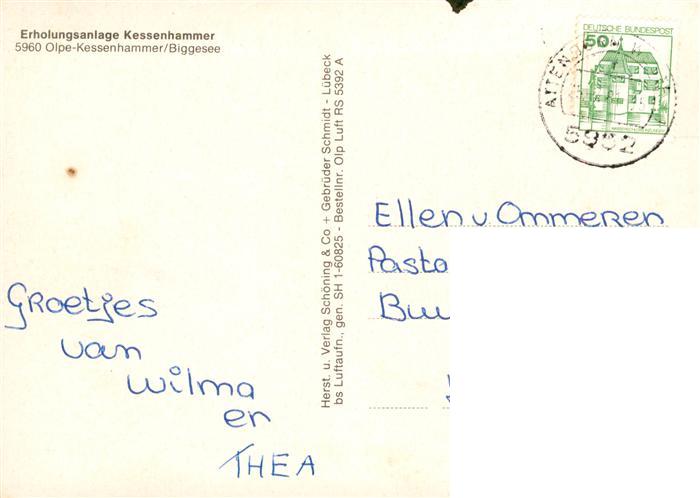 Erholungsanlage Kessenhammer
5960 Olpe-Kessenhammer/Biggesee
Herst. u. Verlag Schöning & Co + Gebrüder Schmidt - Lübeck
bs Luftaufn., gen. SH 1-60825 - Bestellnr. Olp Luft RS 5392 A
DEUTSCHE BUNDESPOST
50
5952
Ellen v. Ommeren
Pasto
Groetjes
van
Wilma
en
THEA